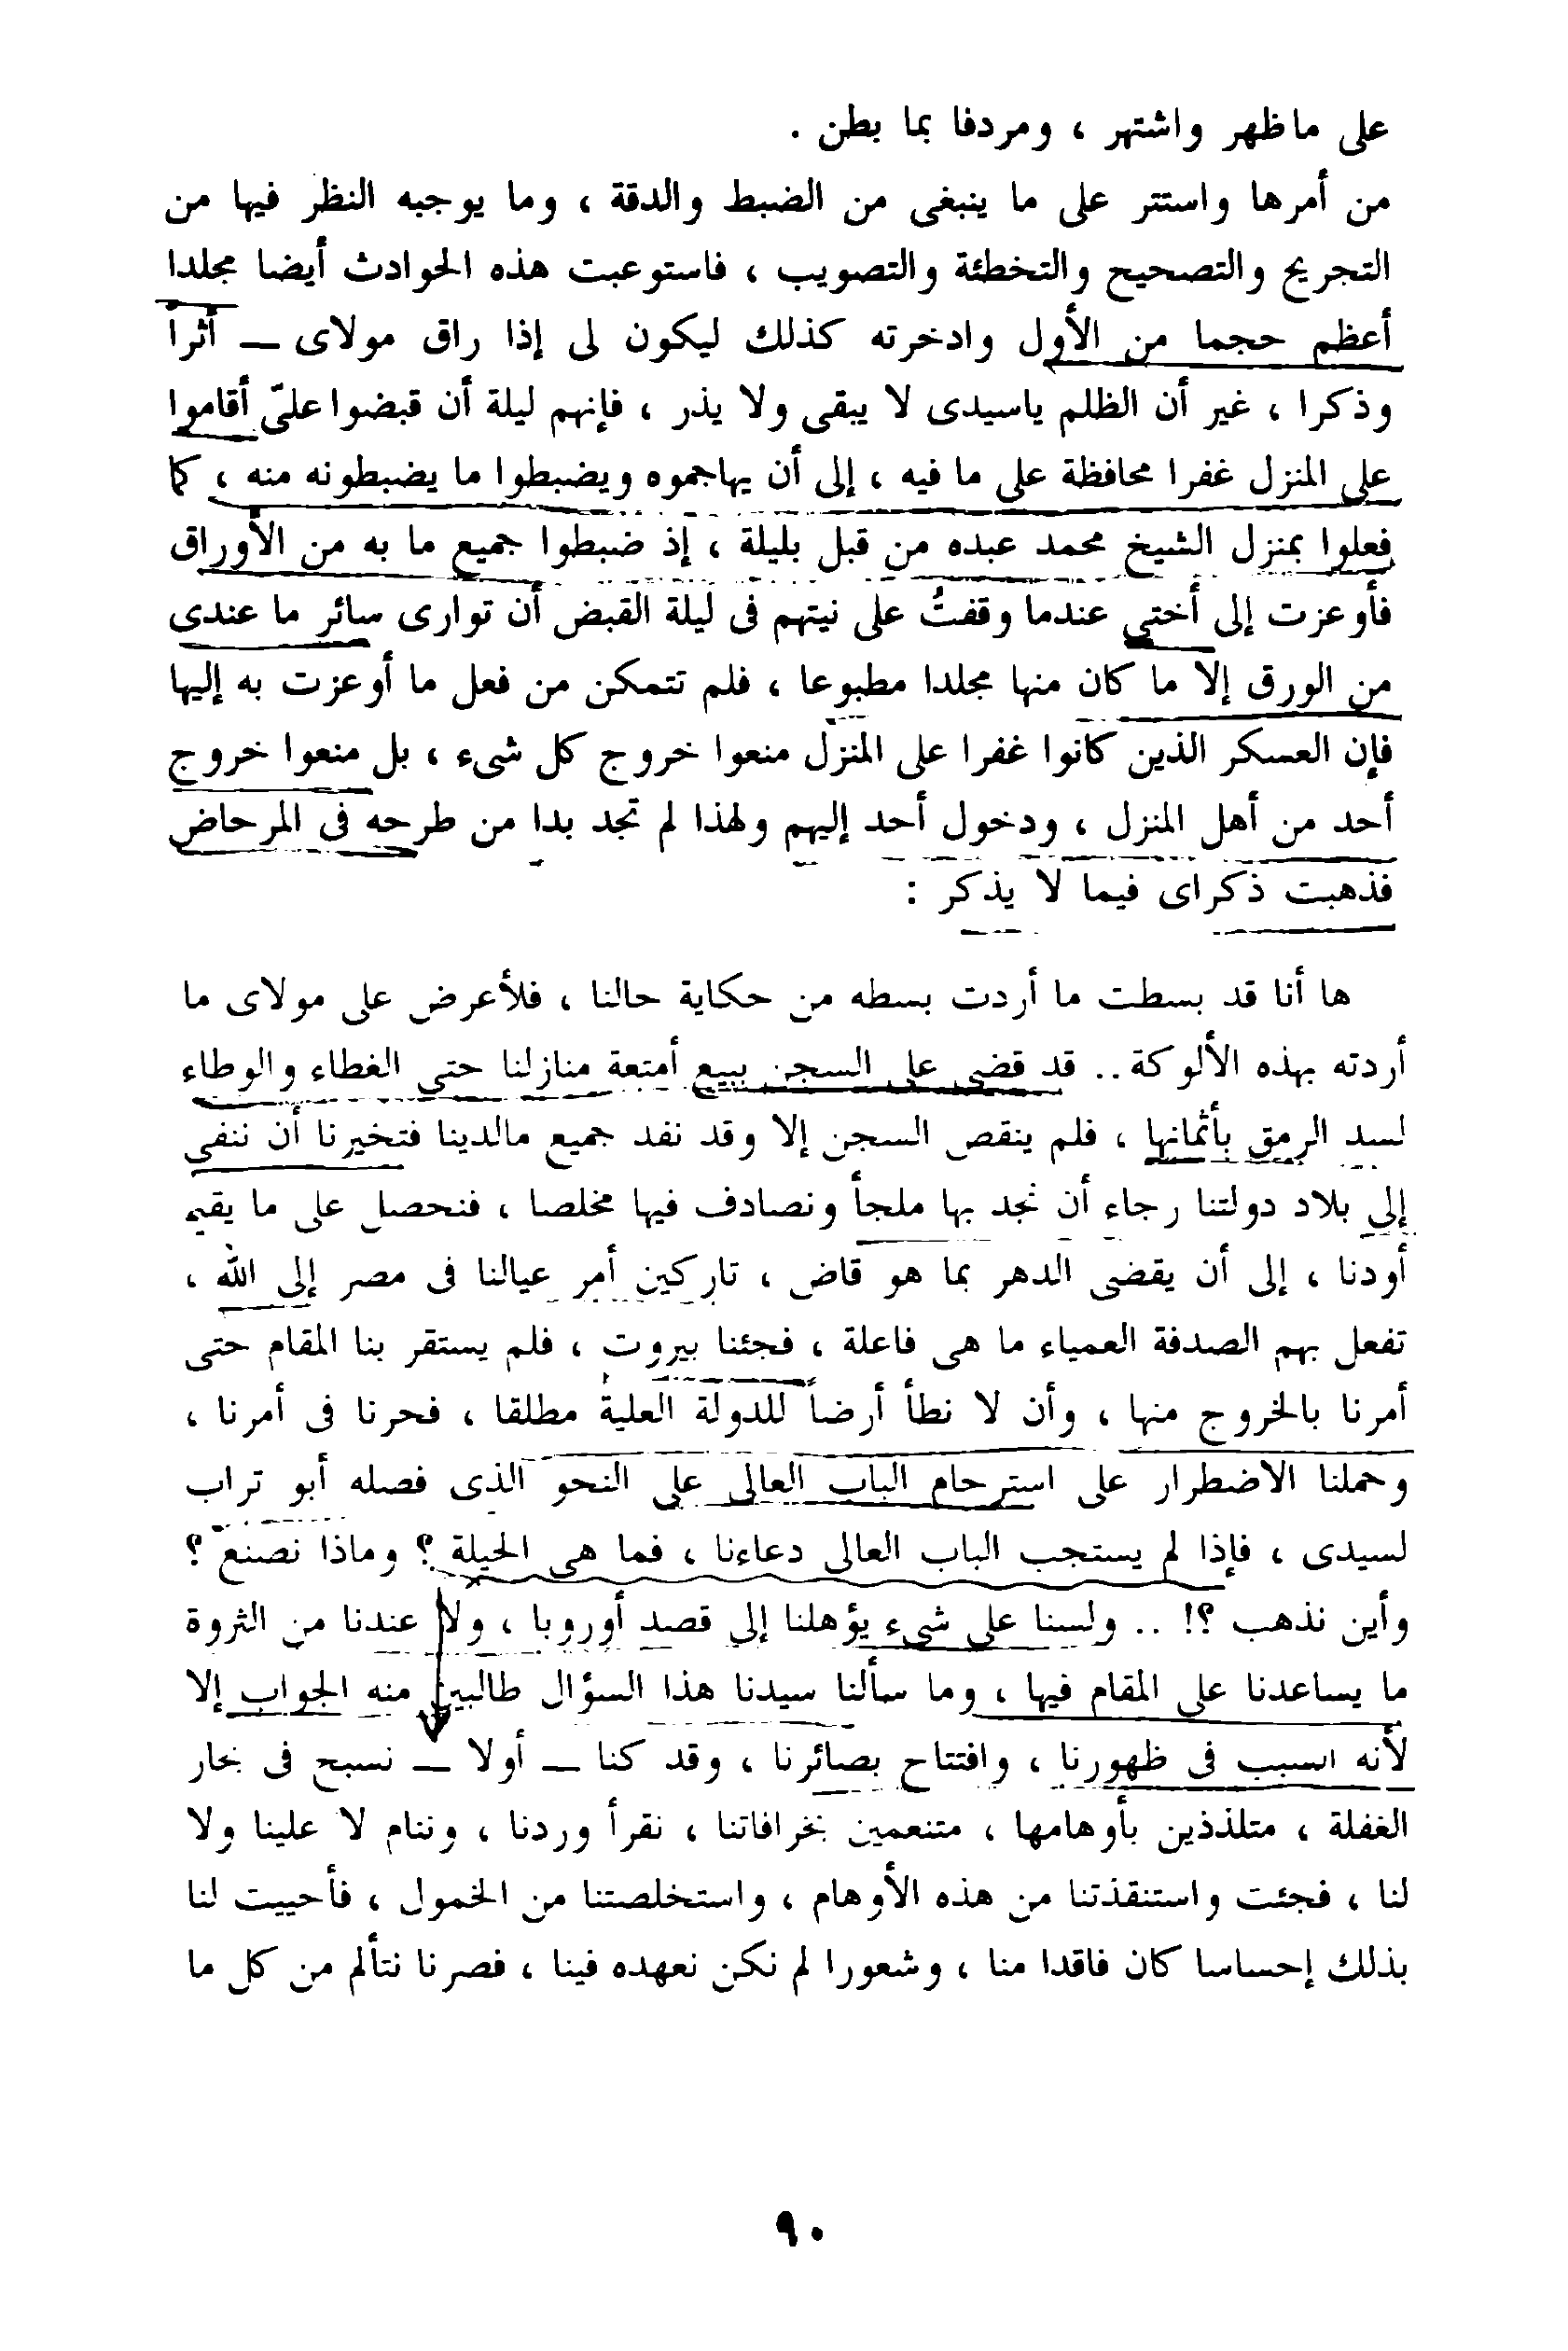 على ماظهر واشتهر ، ومردفا بما بطن .
من أمرها واستتر على ما ينبغى من الضبط والدقة ، وما يوجبه النظر فيها من
التجريح والتصحيح والتخطئة والتصويب ، فاستوعبت هذه الحوادث أيضا مجلدا
أعظم حجما من الأول وادخرته كذلك ليكون لى إذا راق مولاى — أثراً
وذكرا ، غير أن الظلم ياسيدى لا يبقى ولا يذر ، فإنهم ليلة أن قبضوا علىّ أقاموا
على المنزل غفرا محافظة على ما فيه ، إلى أن يهاجموه ويضبطوا ما يضبطونه منه ، كما
فعلوا بمنزل الشيخ محمد عبده من قبل بليلة ، إذ ضبطوا جميع ما به من الأوراق
فأوعزت إلى أختي عندما وقفتُ على نيتهم فى ليلة القبض أن توارى سائر ما عندى
من الورق إلا ما كان منها مجلدا مطبوعا ، فلم تتمكن من فعل ما أوعزت به إليها
فإن العسكر الذين كانوا غفرا على المنزل منعوا خروج كل شىء ، بل منعوا خروج
أحد من أهل المنزل ، ودخول أحد إليهم ولهذا لم تجد بدا من طرحه فى المرحاض
فذهبت ذكراى فيما لا يذكر :
ها أنا قد بسطت ما أردت بسطه من حكاية حالنا ، فلأعرض على مولاى ما
أردته بهذه الألوكة .. قد قضى على السجن ببيع أمتعة منازلنا حتى الغطاء والوطاء
لسد الرمق بأثمانها ، فلم ينقص السجن إلا وقد نفد جميع مالدينا فتخيرنا أن ننفى
إلى بلاد دولتنا رجاء أن نجد بها ملجأ ونصادف فيها مخلصا ، فنحصل على ما يقيم
أودنا ، إلى أن يقضى الدهر بما هو قاض ، تاركين أمر عيالنا فى مصر إلى الله ،
تفعل بهم الصدفة العمياء ما هى فاعلة ، فجئنا بيروت ، فلم يستقر بنا المقام حتى
أمرنا بالخروج منها ، وأن لا نطأ أرضاً للدولة العلية مطلقا ، فحرنا فى أمرنا ،
وحملنا الاضطرار على استرحام الباب العالى على النحو الذى فصله أبو تراب
لسيدى ، فإذا لم يستجب الباب العالى دعاءنا ، فما هى الحيلة ؟ وماذا نصنع ؟
وأين نذهب ؟! .. ولسنا على شىء يؤهلنا إلى قصد أوروبا ، ولا عندنا من الثروة
ما يساعدنا على المقام فيها ، وما سألنا سيدنا هذا السؤال طالبين منه الجواب إلا
لأنه السبب فى ظهورنا ، وافتتاح بصائرنا ، وقد كنا — أولا — نسبح فى بحار
الغفلة ، متلذذين بأوهامها ، متنعمين بخرافاتنا ، نقرأ وردنا ، وننام لا علينا ولا
لنا ، فجئت واستنقذتنا من هذه الأوهام ، واستخلصتنا من الخمول ، فأحييت لنا
بذلك إحساسا كان فاقدا منا ، وشعورا لم نكن نعهده فينا ، فصرنا نتألم من كل ما
٩٠